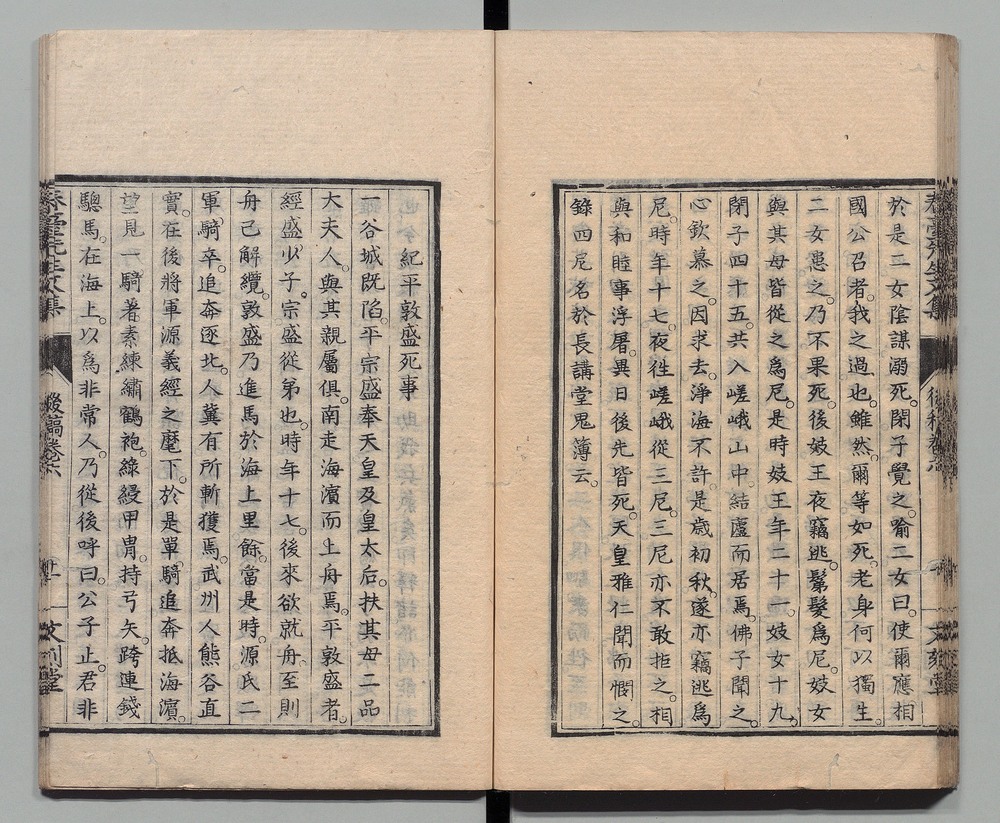 於是二女陰謀溺死。閉子覺之。喻二女曰。使爾應相
國公召者。我之過也。雖然爾等如死。老身何以獨生
二女患之。乃不果死。後妓王夜竊逃。鬀髮爲尼。妓女
與其母皆從之爲尼。是時妓王年二十一。妓女十九。
閉子四十五。共入嵯峨山中。結廬而居焉。佛子聞之。
心欽慕之。因求去。淨海不許。是歳初秋。遂亦竊逃爲
尼。時年十七。夜徃嵯峨從三尼。三尼亦不敢拒之。相
與和睦事浮屠。異日後先皆死。天皇雅仁聞而憫之。
錄四尼名於長講堂鬼簿云。
春臺先生文集
後稿卷六
紀平敦盛死事
一谷城既陷。平宗盛奉天皇及皇太后。扶其母二品
大夫人。與其親屬俱。南走海濱而上舟焉。平敦盛者。
經盛少子。宗盛從弟也。時年十七。後來欲就舟。至則
舟已解纜。敦盛乃進馬於海上里餘。當是時。源氏二
軍騎卒追奔逐北。人冀有所斬獲焉。武州人熊谷直
實。在後將軍源義經之麾下。於是單騎追奔抵海濱。
望見一騎著素練繡鶴袍。綠縵甲冑。持弓矢。跨連錢
驄馬。在海上。以爲非常人。乃從後呼曰。公子止。君非
春臺先生文集
後稿卷六